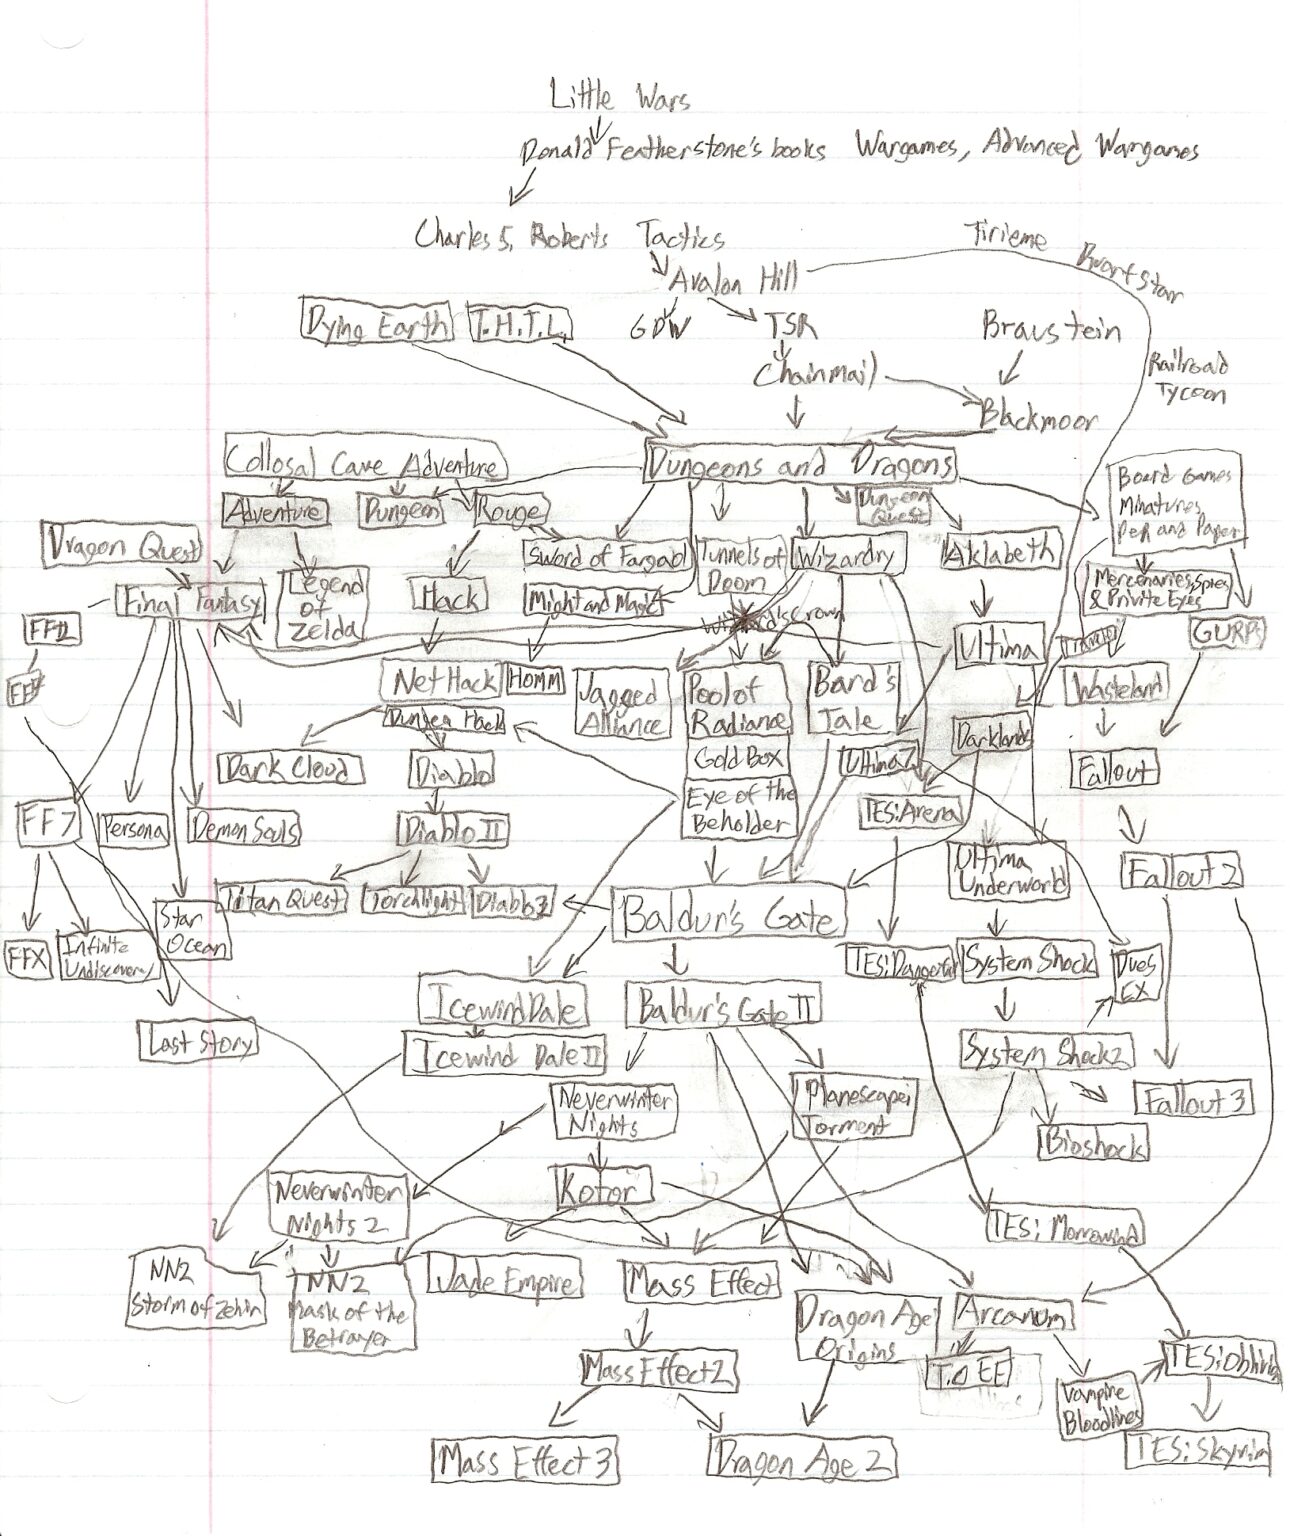 Little Wars
Donald Featherstone's books Wargames, Advanced Wargames
Charles S. Roberts Tactics
Tirieme
Dwarfstar
Avalon Hill
Dying Earth
T.H.T.L.
GDW
TSR
Braustein
Chainmail
Railroad
Tycoon
Blackmoor
Collosal Cave Adventure
Dungeons and Dragons
Board Games
Minatures
Pen and Paper
Adventure
Dungeon
Rouge
Dungeon
Quest
Dragon Quest
Sword of Fargoal
Tunnels of
Doom
Wizardry
Aklabeth
Final Fantasy
Legend
of
Zelda
Hack
Might and Magic
Mercenaries, Spies,
& Privite Eyes
Wizard's Crown
GURPS
FFII
Ultima
NetHack
HOMM
Jagged
Alliance
Pool of
Radiance
Bard's
Tale
Wasteland
Dungeon Hack
Gold Box
Darklands
Dark Cloud
Diablo
Ultima 7
Fallout
Eye of the
Beholder
TES: Arena
FF7
Persona
Demon Souls
Diablo II
Ultima
Underworld
Fallout 2
Titan Quest
Torchlight
Diablo 3
Baldur's Gate
Star
Ocean
FFX
Infinite
Undiscovery
TES: Daggerfall
System Shock
Dues
EX
Icewind Dale
Baldur's Gate II
Last Story
Icewind Dale II
System Shock 2
Neverwinter
Nights
Planescape:
Torment
Fallout 3
Bioshock
Neverwinter
Nights 2
Kotor
TES: Morrowind
NN2
Storm of Zehir
NN2
Mask of the
Betrayer
Jade Empire
Mass Effect
Dragon Age
Origins
Arcanum
Mass Effect 2
T.O EE
TES: Oblivion
Vampire
Bloodlines
Mass Effect 3
Dragon Age 2
TES: Skyrim